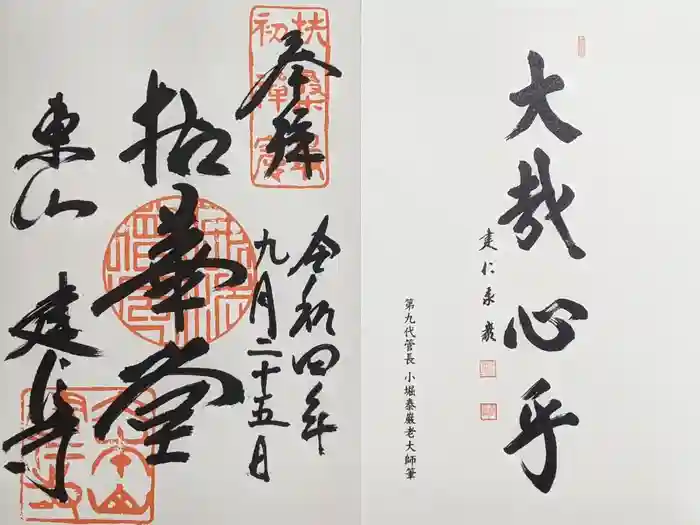 奉拝
扶桑最
初禅窟
令和四年
九月二十五日
拈華堂
東山 建仁寺
大哉心乎
建仁泰巖
第九代管長 小堀泰巖老大師筆